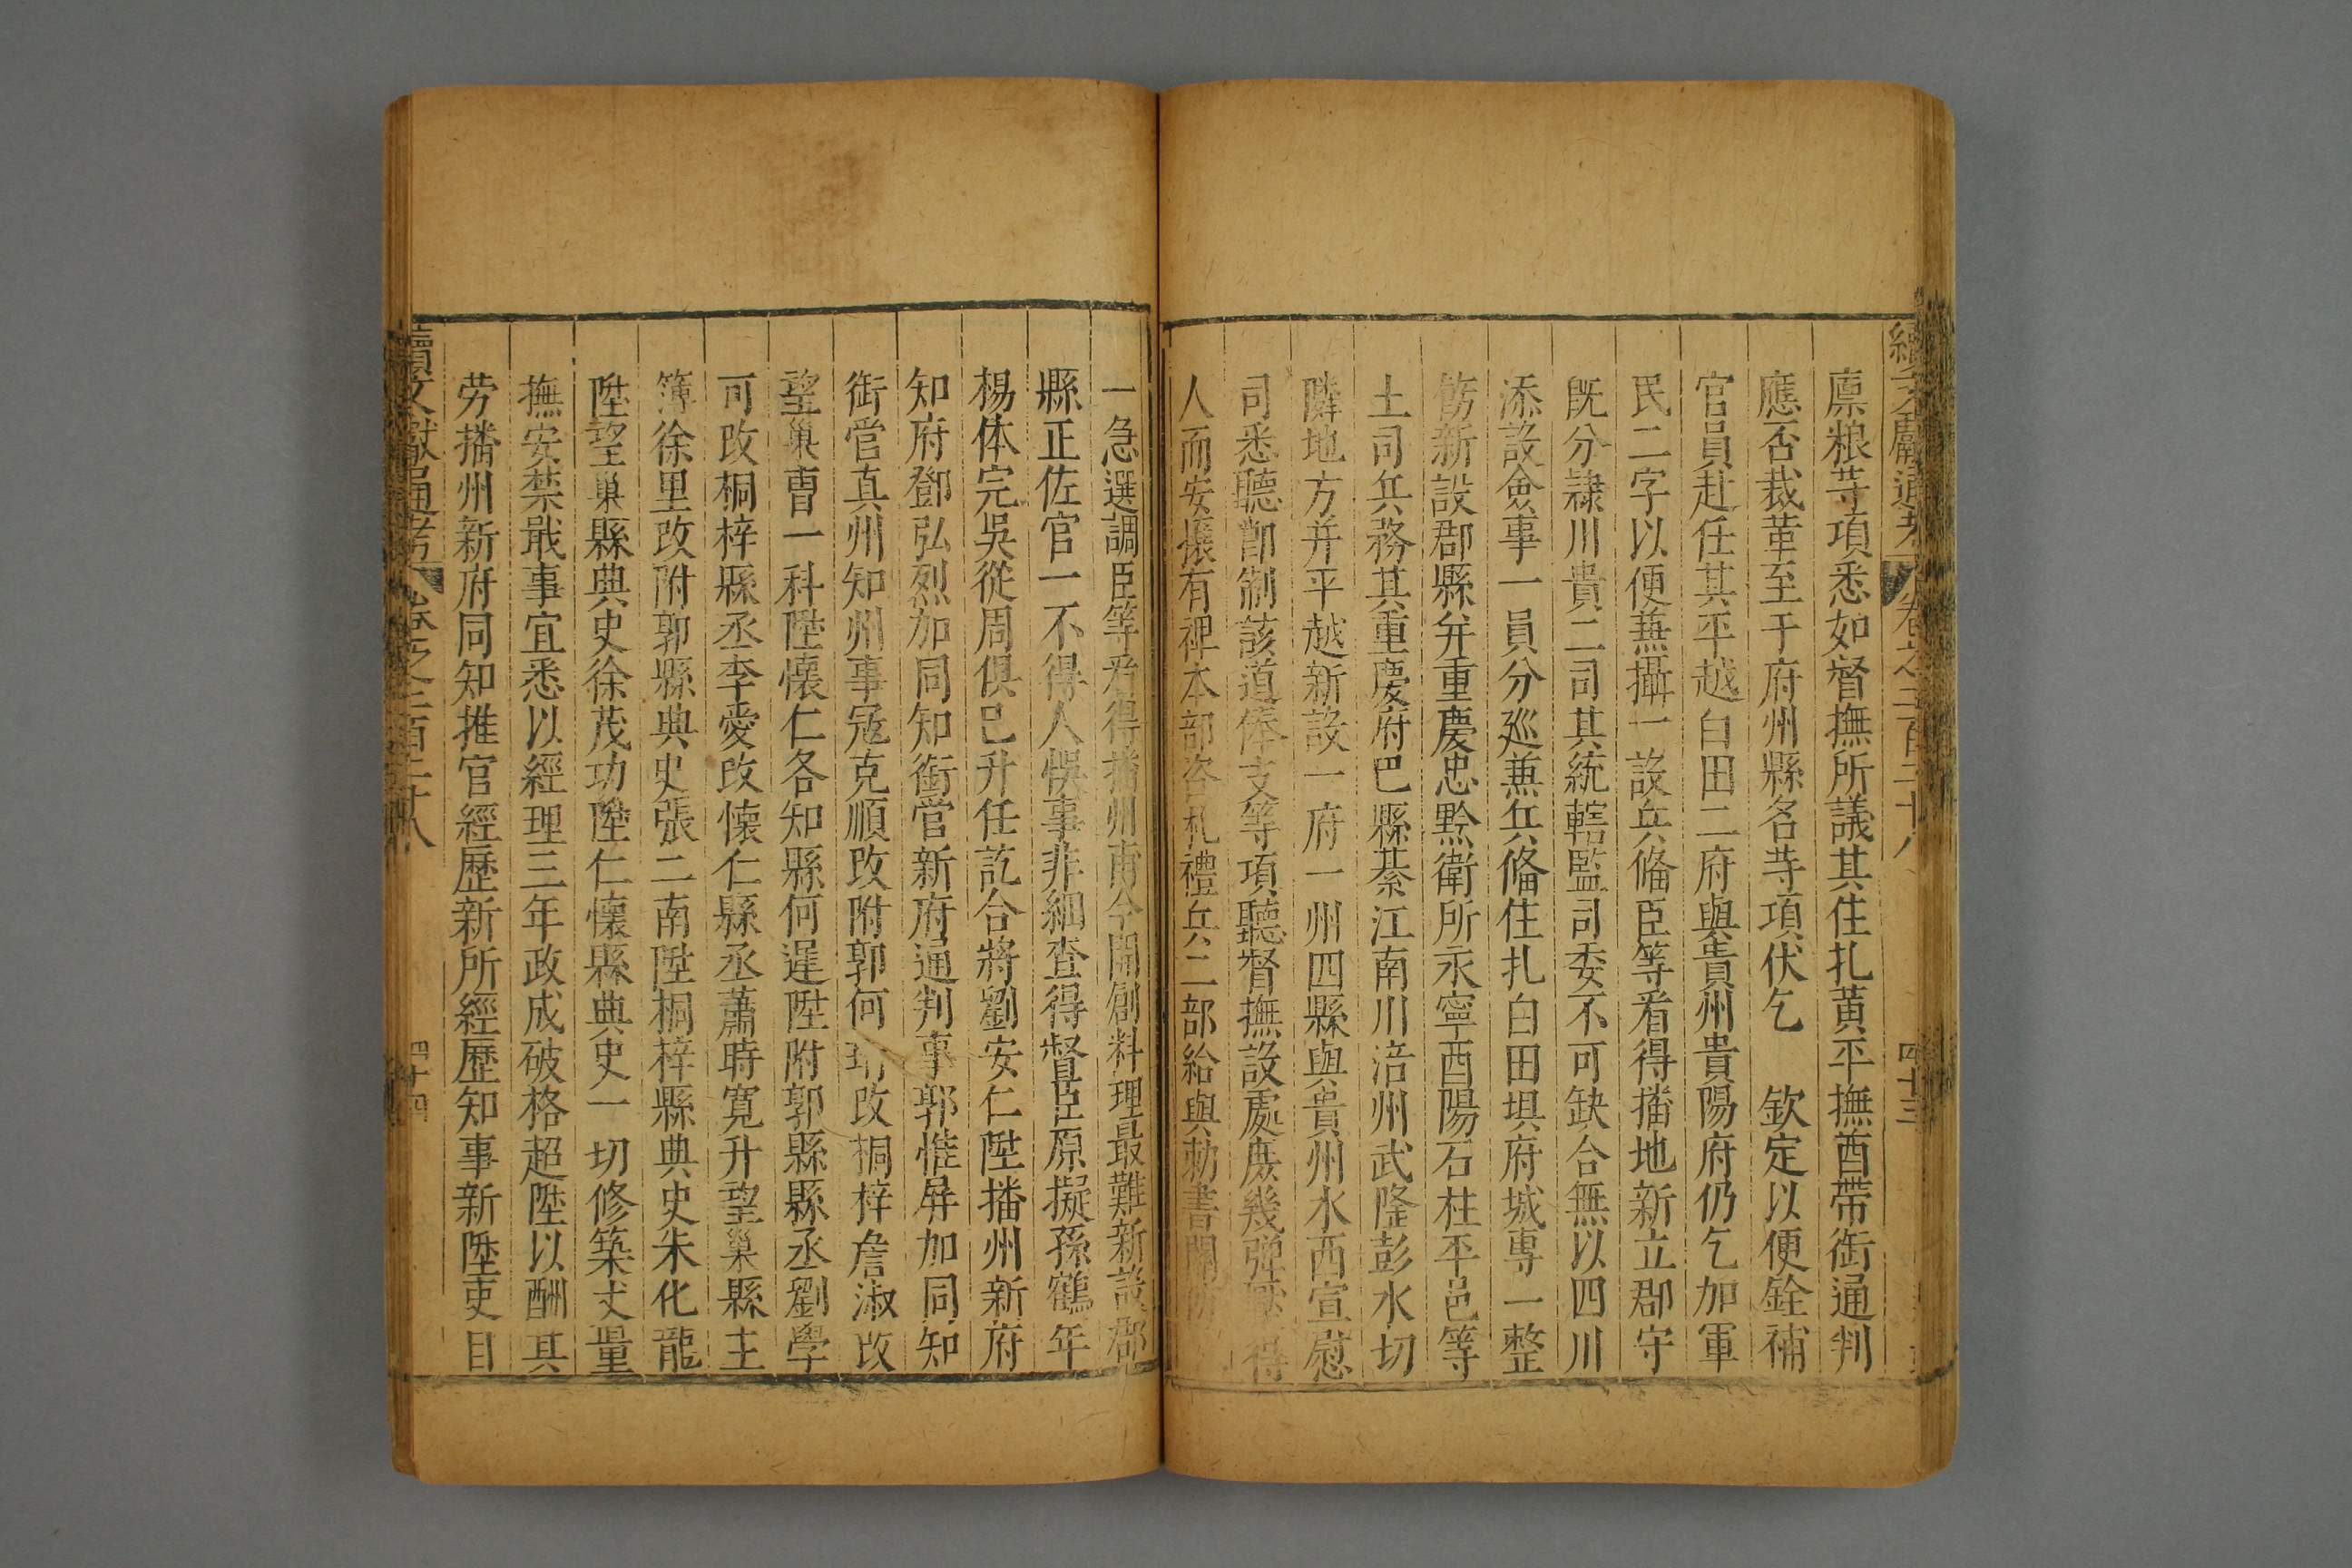 續文獻通考 卷之二百三十八 四十三
廪粮等項悉如督撫所議其住扎黄平撫酉帶銜通判
應否裁革至于府州縣名等項伏乞 欽定以便銓補
官員赴任其平越白田二府與貴州貴陽府仍乞加軍
民二字以便兼攝一設兵俻臣等看得播地新立郡守
既分隸川貴二司其統轄監司委不可缺合無以四川
添設僉事一員分廵兼兵俻住扎白田垻府城專一整
飭新設郡縣并重慶忠黔衛所永寧酉陽石柱平邑等
土司兵務其重慶府巴縣綦江南川涪州武隆彭水切
隣地方并平越新設一府一州四縣與貴州水西宣慰
司悉聽節制該道俸支等項聽督撫設處庶幾彈壓得
人而安攘有裨本部咨札禮兵二部給與勅書關防
一急選調臣等看得播州甫今開創料理最難新設郡
縣正佐官一不得人悞事非細查得督臣原擬孫鶴年
楊体完吳從周俱已升任訖合將劉安仁陞播州新府
知府鄧弘烈加同知銜管新府通判事郭惟屏加同知
銜管真州知州事冦克順改附郭何 改桐梓詹淑改
望巢曹一科陞懐仁各知縣何遅陞附郭縣縣丞劉學
可改桐梓縣丞李愛改懐仁縣丞蕭時寛升望巢縣主
簿徐里改附郭縣典史張二南陞桐梓縣典史朱化龍
陞望巢縣典史徐茂功陞仁懐縣典史一切修築丈量
撫安禁戢事宜悉以經理三年政成破格超陞以酬其
劳播州新府同知推官經歷新所經歷知事新陞吏目
續文獻通考 卷之二百三十八 四十四